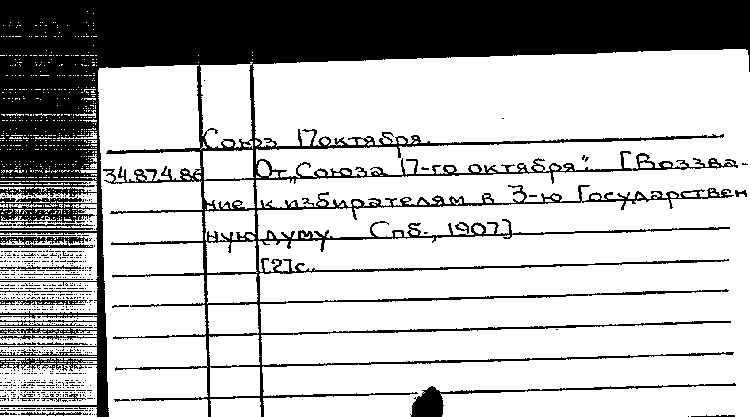 Союз 17 октября.
34.874.86 От „Союза 17-го октября". [Воззва-
ние к избирателям в 3-ю Государствен
ную думу. Спб., 1907].
[2] с.